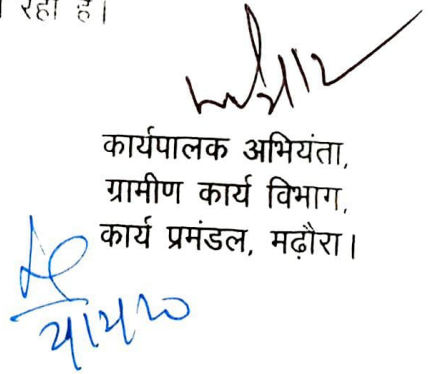 रहा है।
कार्यपालक अभियंता,
ग्रामीण कार्य विभाग,
कार्य प्रमंडल, मढ़ौरा।